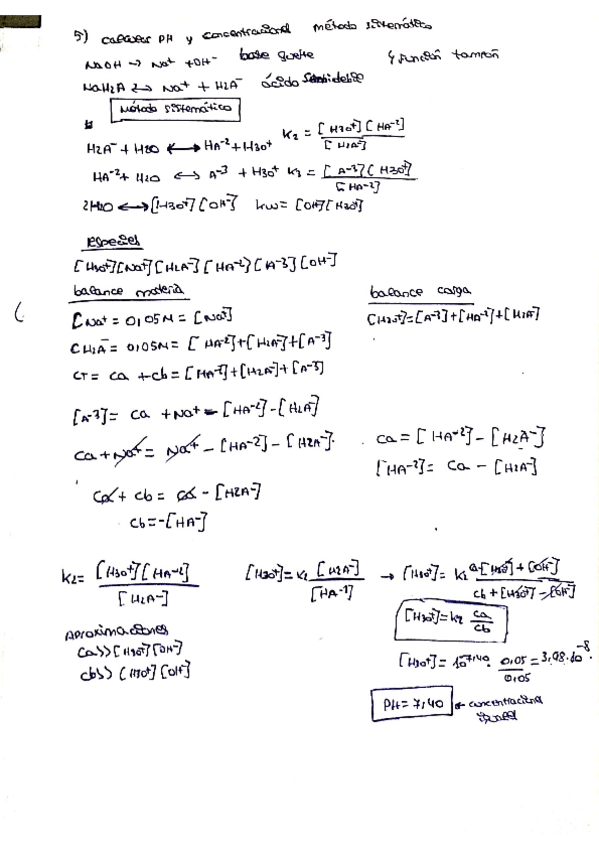 5) calcular PH y concentracional método sistemático
NaOH → Na⁺ + OH⁻ base fuerte } función tampón
NaH2A ↔ Na⁺ + H2A⁻ ácido débil
Método sistemático
H2A⁻ + H2O ↔ HA⁻² + H3O⁺ K2 = [H3O⁺][HA⁻²] / [H2A⁻]
HA⁻² + H2O ↔ A⁻³ + H3O⁺ K3 = [A⁻³][H3O⁺] / [HA⁻²]
2H2O ↔ [H3O⁺][OH⁻] Kw = [OH⁻][H3O⁺]
especies
[H3O⁺][Na⁺][H2A⁻][HA⁻²][A⁻³][OH⁻]
balance materia balance carga
CNa⁺ = 0,05M = [Na⁺] [H3O⁺] = [A⁻³] + [HA⁻²] + [H2A⁻]
CH2A⁻ = 0,05M = [HA⁻²] + [H2A⁻] + [A⁻³]
CT = Ca + Cb = [HA⁻²] + [H2A⁻] + [A⁻³]
[A⁻³] = Ca + Na⁺ - [HA⁻²] - [H2A⁻]
Ca + Na⁺ = Na⁺ - [HA⁻²] - [H2A⁻] Ca = [HA⁻²] - [H2A⁻]
[HA⁻²] = Ca - [H2A⁻]
Ca + Cb = Ca - [H2A⁻]
Cb = -[HA⁻]
K2 = [H3O⁺][HA⁻²] / [H2A⁻] [H3O⁺] = K2 [H2A⁻] / [HA⁻¹] → [H3O⁺] = K2 Ca - [H3O⁺] + [OH⁻] / Cb + [H3O⁺] - [OH⁻]
[H3O⁺] = K2 Ca / Cb
Aproximaciones
Ca>> [H3O⁺][OH⁻]
Cb>> [H3O⁺][OH⁻]
[H3O⁺] = 10⁻⁷,⁴⁰ · 0,05 / 0,05 = 3,98·10⁻⁸
PH = 7,40 ← concentraciones iguales